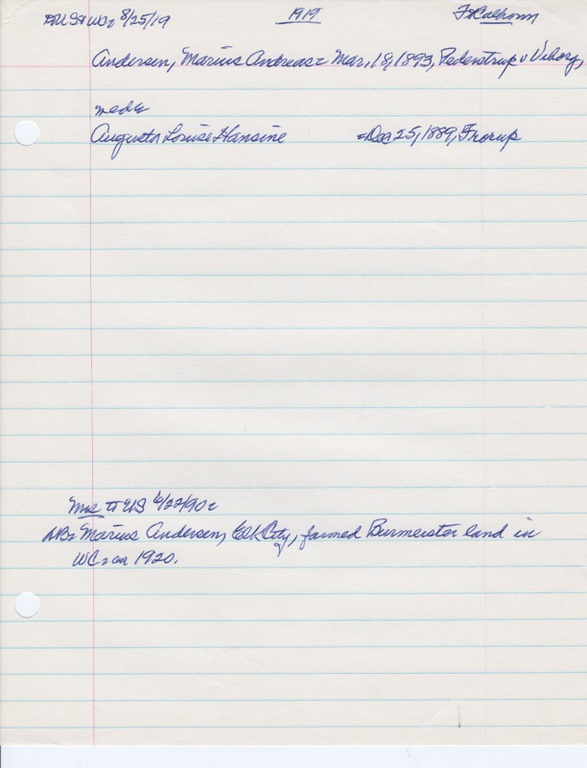 US & WC: 8/25/19 1919 Ft Calhoun
Andersen, Marius Andreas = Mar, 18, 1893, Pederstrup v Viborg,
med:
Augusta Louise Hansine = Dec 25, 1889, Frorup
to US 6/22/90:
NB: Marius Andersen, Elk City, farmed Burmeister land in
WC: ca 1920.